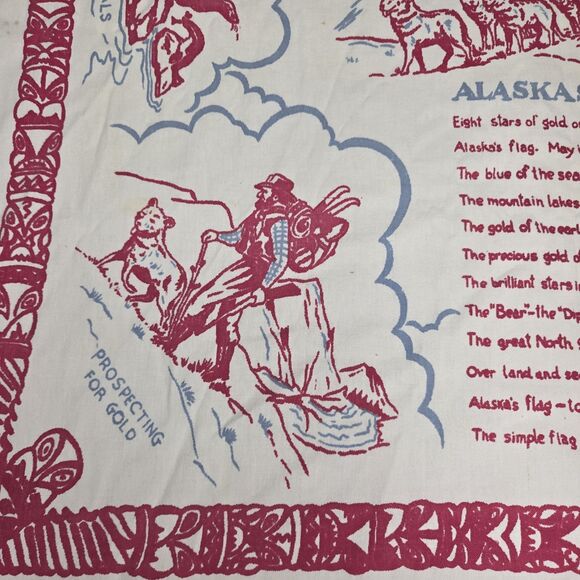 LS-
ALASKAS
Eight stars of gold o
Alaska's flag. May i
The blue of the sea
The mountain lakes
The gold of the earl
The precious gold o
The brilliant stars i
The "Bear"-the "Dip
The great North S
Over land and se
Alaska's flag - to
The simple flag
PROSPECTING
FOR GOLD